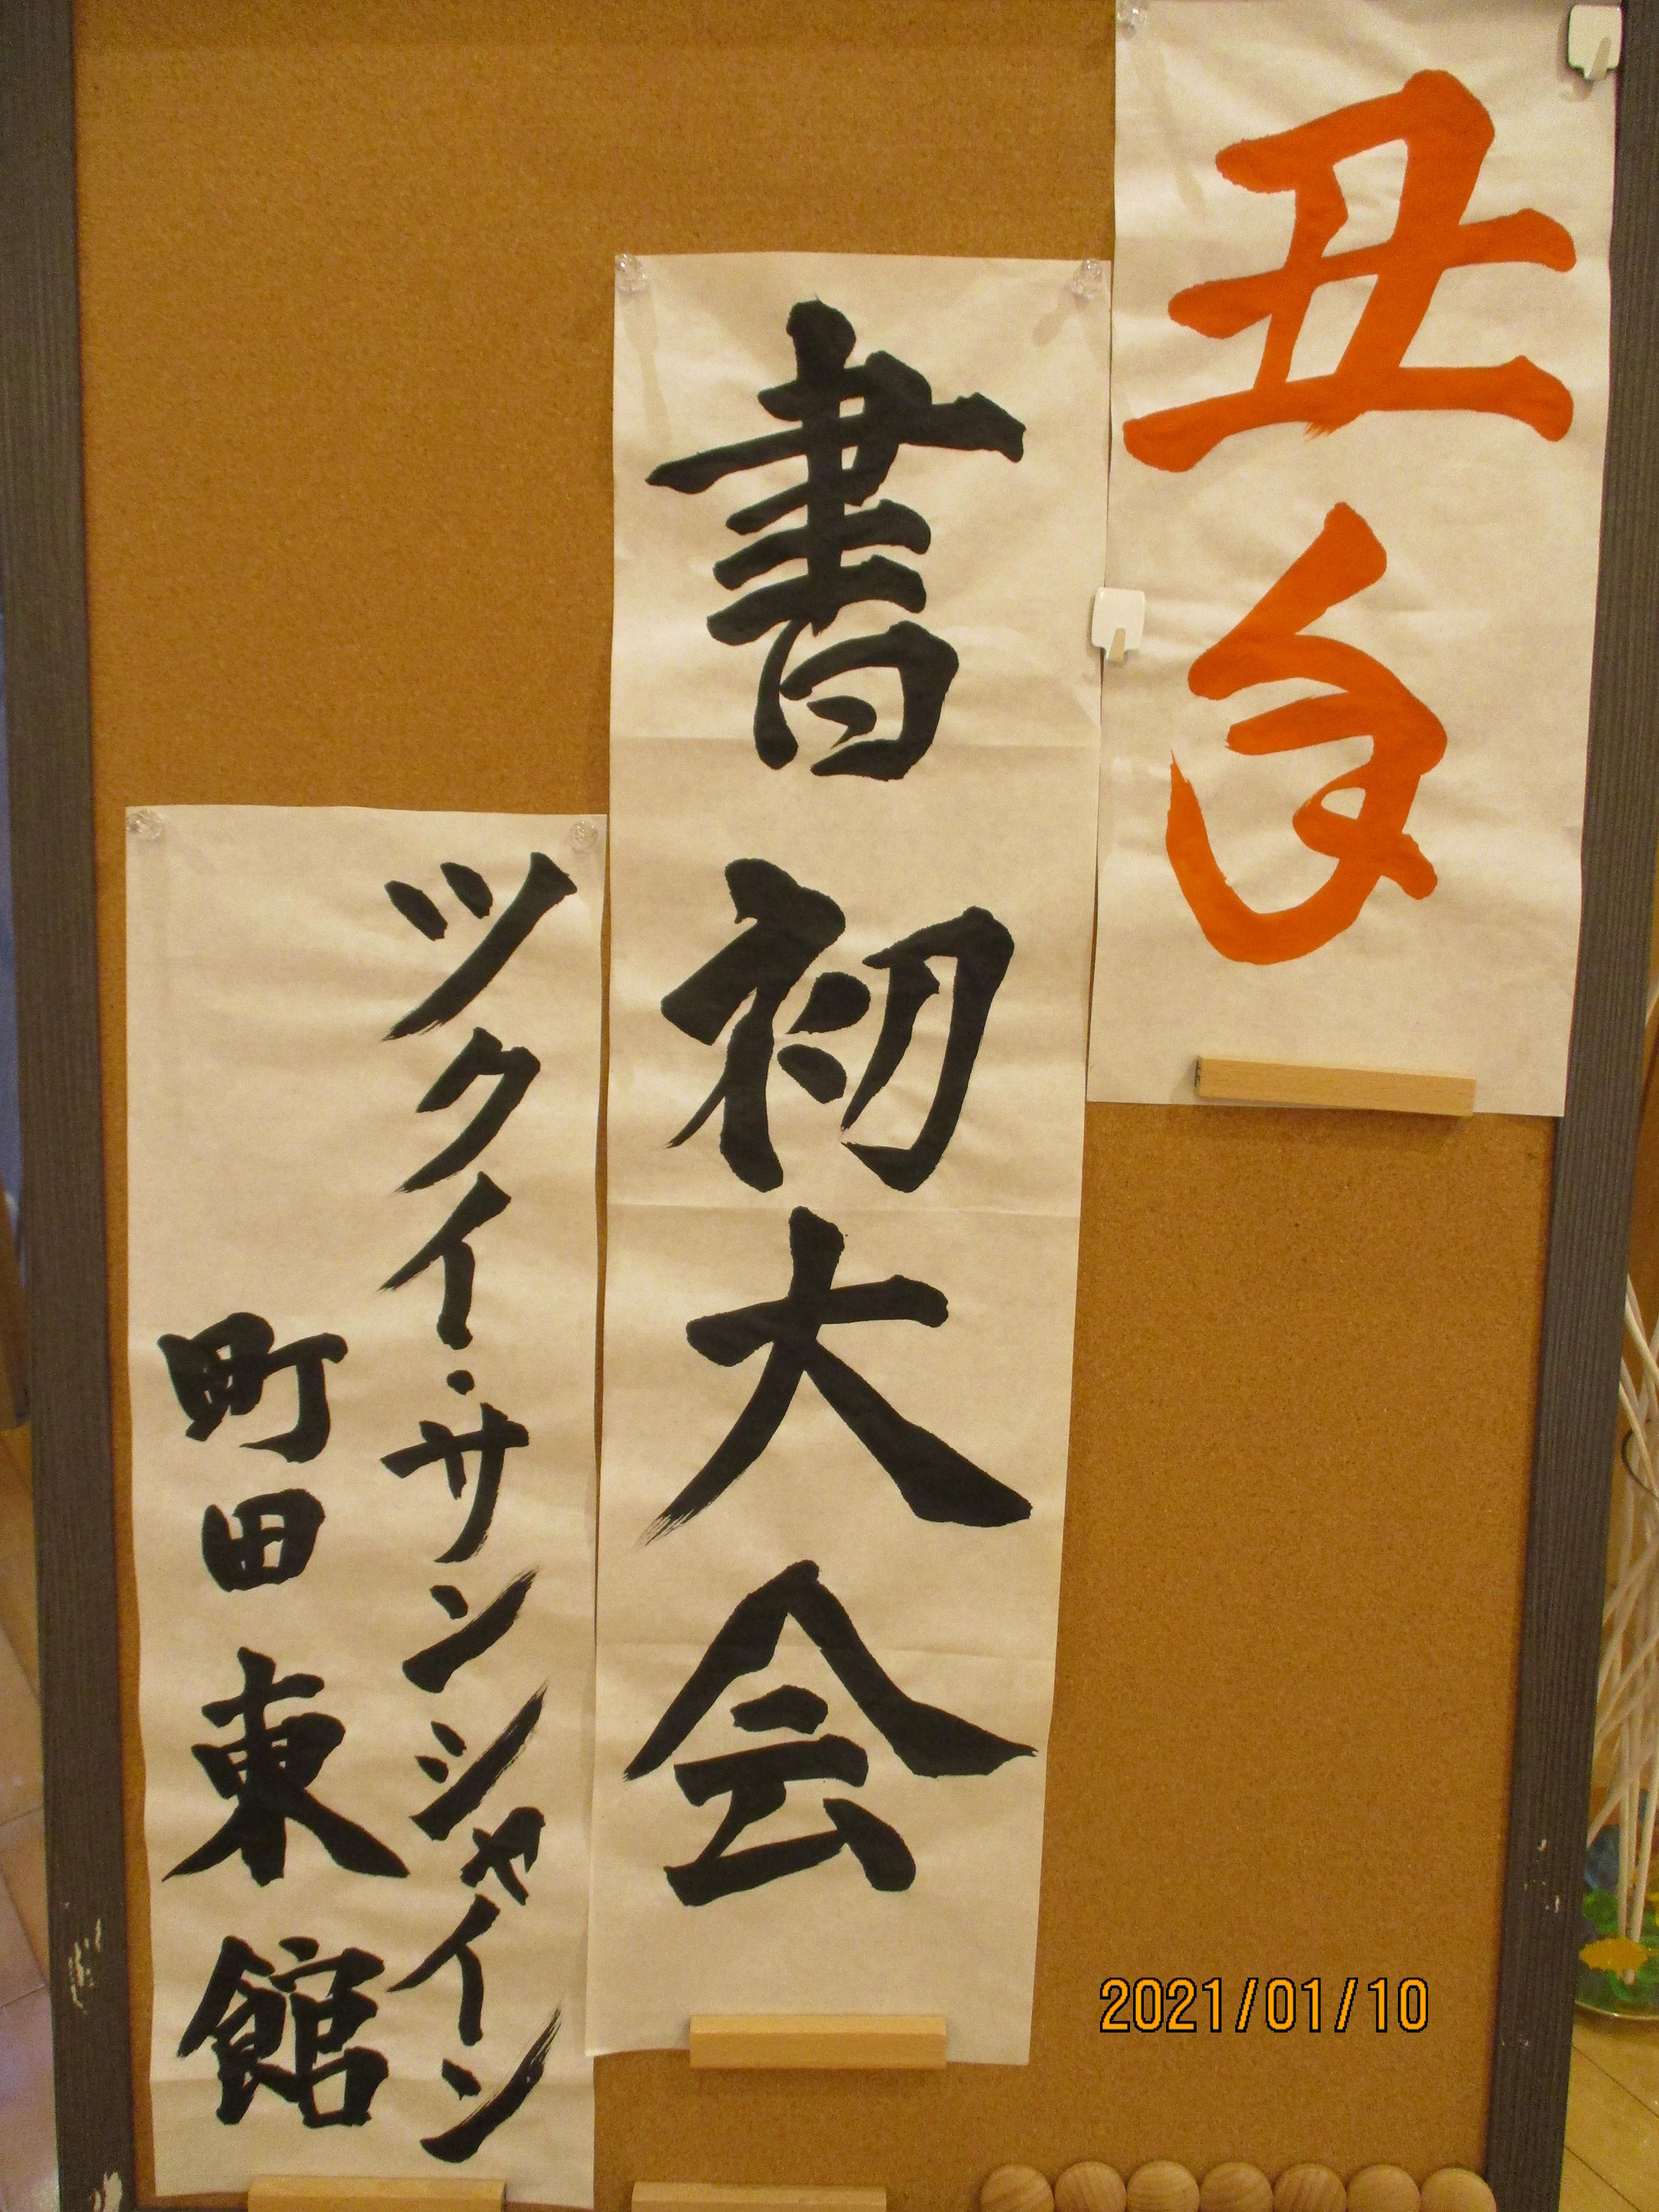 丑年
書初大会
ツクイ・サンシャイン
町田東館
2021/01/10